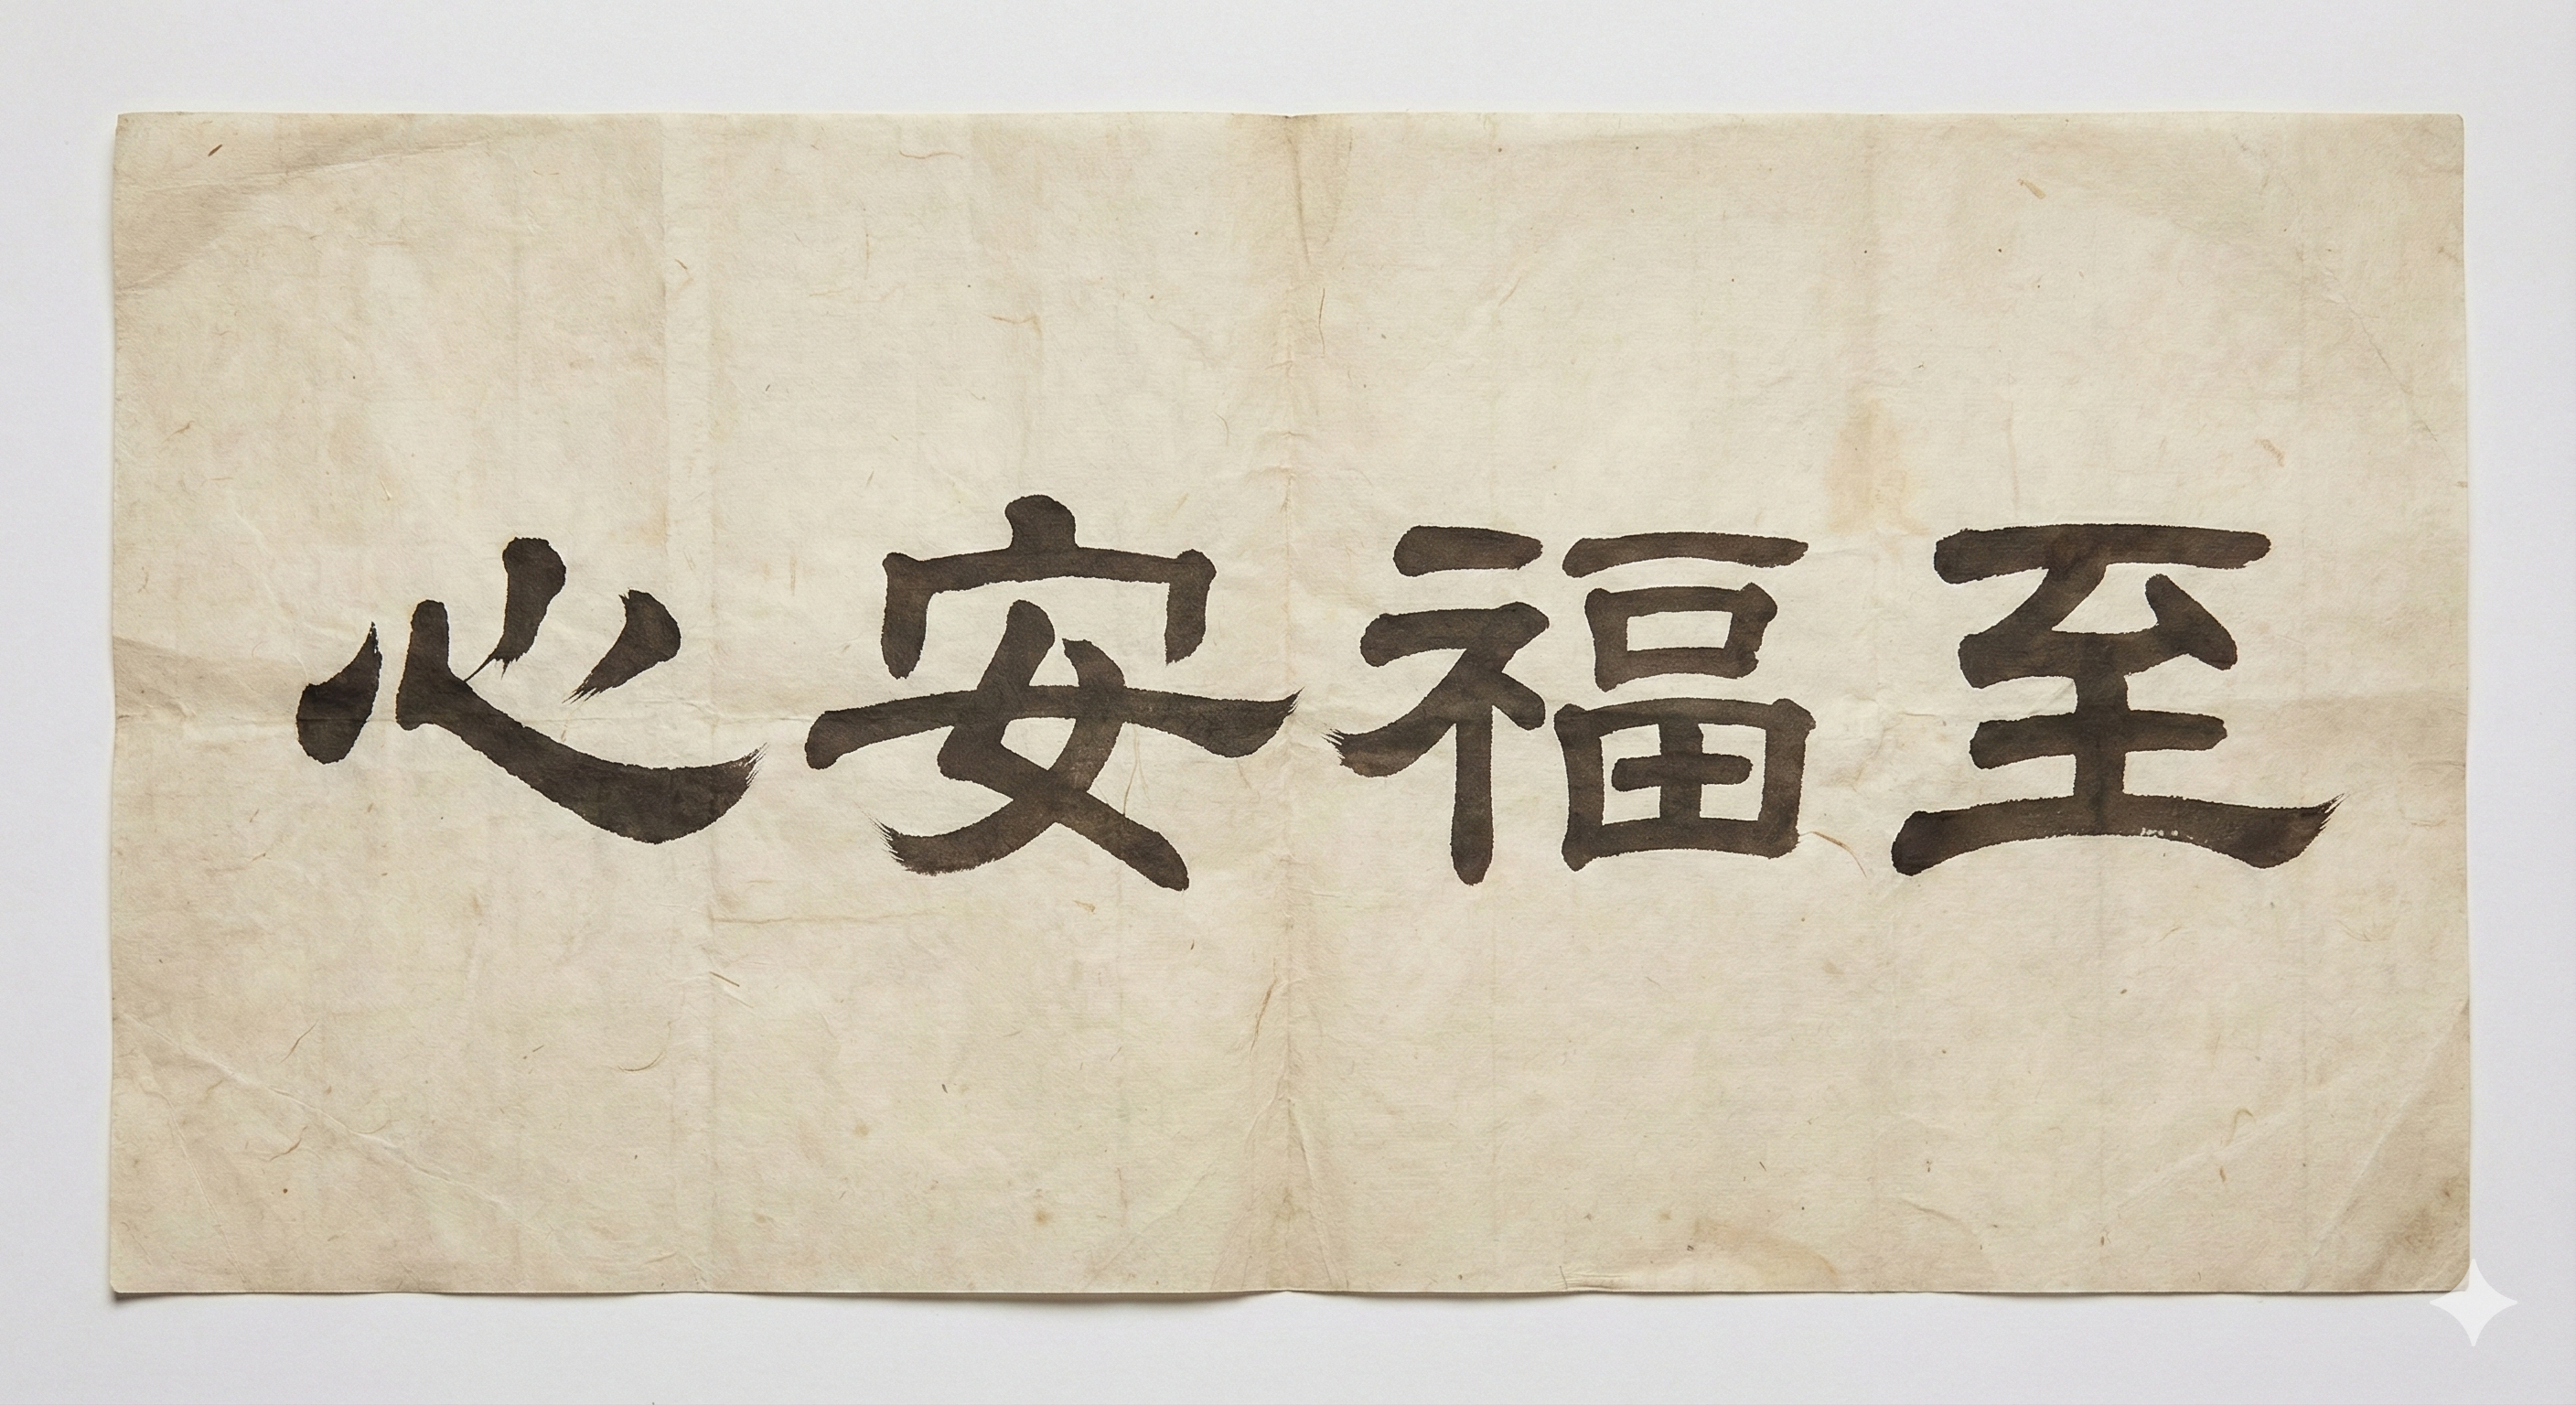 心安福至